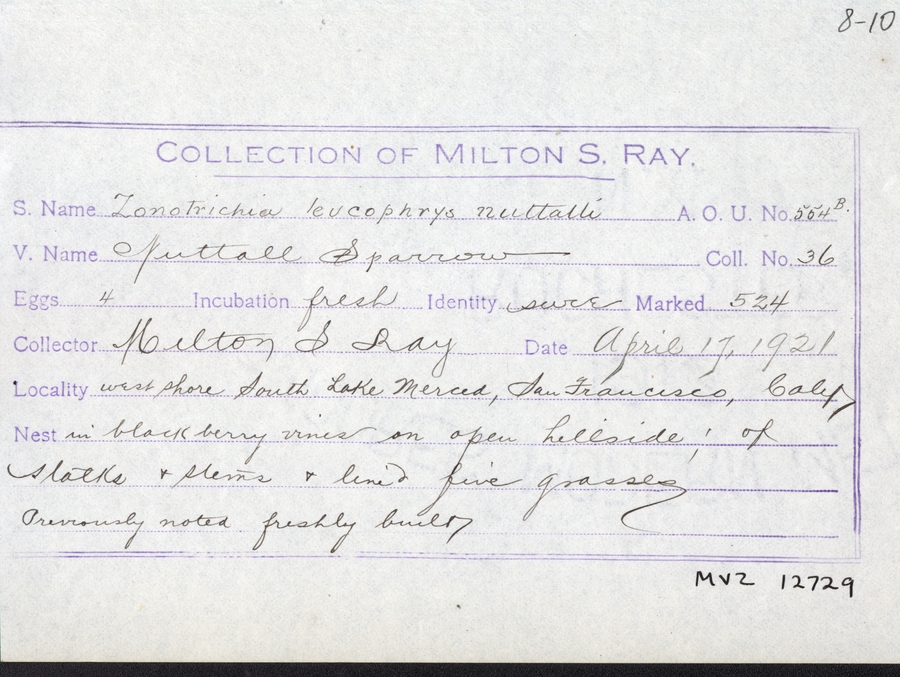 8-10
COLLECTION OF MILTON S. RAY.
S. Name Zonotrichia leucophrys nuttalli A. O. U. No. 554B.
V. Name Nuttall Sparrow Coll. No. 36
Eggs 4 Incubation fresh Identity sure Marked 524
Collector Milton S Ray Date April 17, 1921
Locality west shore South Lake Merced, San Francisco, Calif
Nest in blackberry vines on open hillside; of
stalks + stems + lined fine grasses
Previously noted freshly built
MVZ 12729